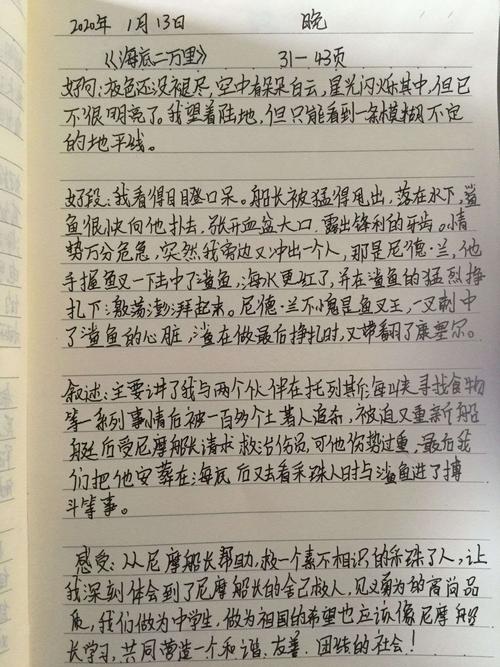 2020年 1月13日 晚
《海底二万里》 31—43页
好句:夜色还没褪尽,空中有朵朵白云,星光闪烁其中,但已
不很明亮了。我望着陆地,但只能看到一条模糊不定
的地平线。
好段:我看得目瞪口呆。船长被猛得甩出,落在水下,鲨
鱼很快向他扑去,张开血盆大口,露出锋利的牙齿。情
势万分危急,突然我旁边又冲出一个人,那是尼德·兰,他
手握鱼叉一下击中了鲨鱼,海水更红了,并在鲨鱼的猛烈挣
扎下激荡澎湃起来。尼德·兰不愧是鱼叉王,一叉刺中
了鲨鱼的心脏,鲨在做最后挣扎时,又带翻了康塞尔。
叙述:主要讲了我与两个伙伴在托列斯海峡寻找食物
等一系列事情后被一百多个土著人追赤,被迫又重新船
艇后受尼摩船长请求救治伤员,可他伤势过重,最后我
们把他安葬在海底后又去看采珠人时与鲨鱼进了搏
斗等事。
感受:从尼摩船长帮助,救一个素不相识的采珠了人,让
我深刻体会到了尼摩船长的舍己救人,见义勇为的高尚品
质,我们做为中学生,做为祖国的希望也应该像尼摩船
长学习,共同营造一个和谐、友善、团结的社会!